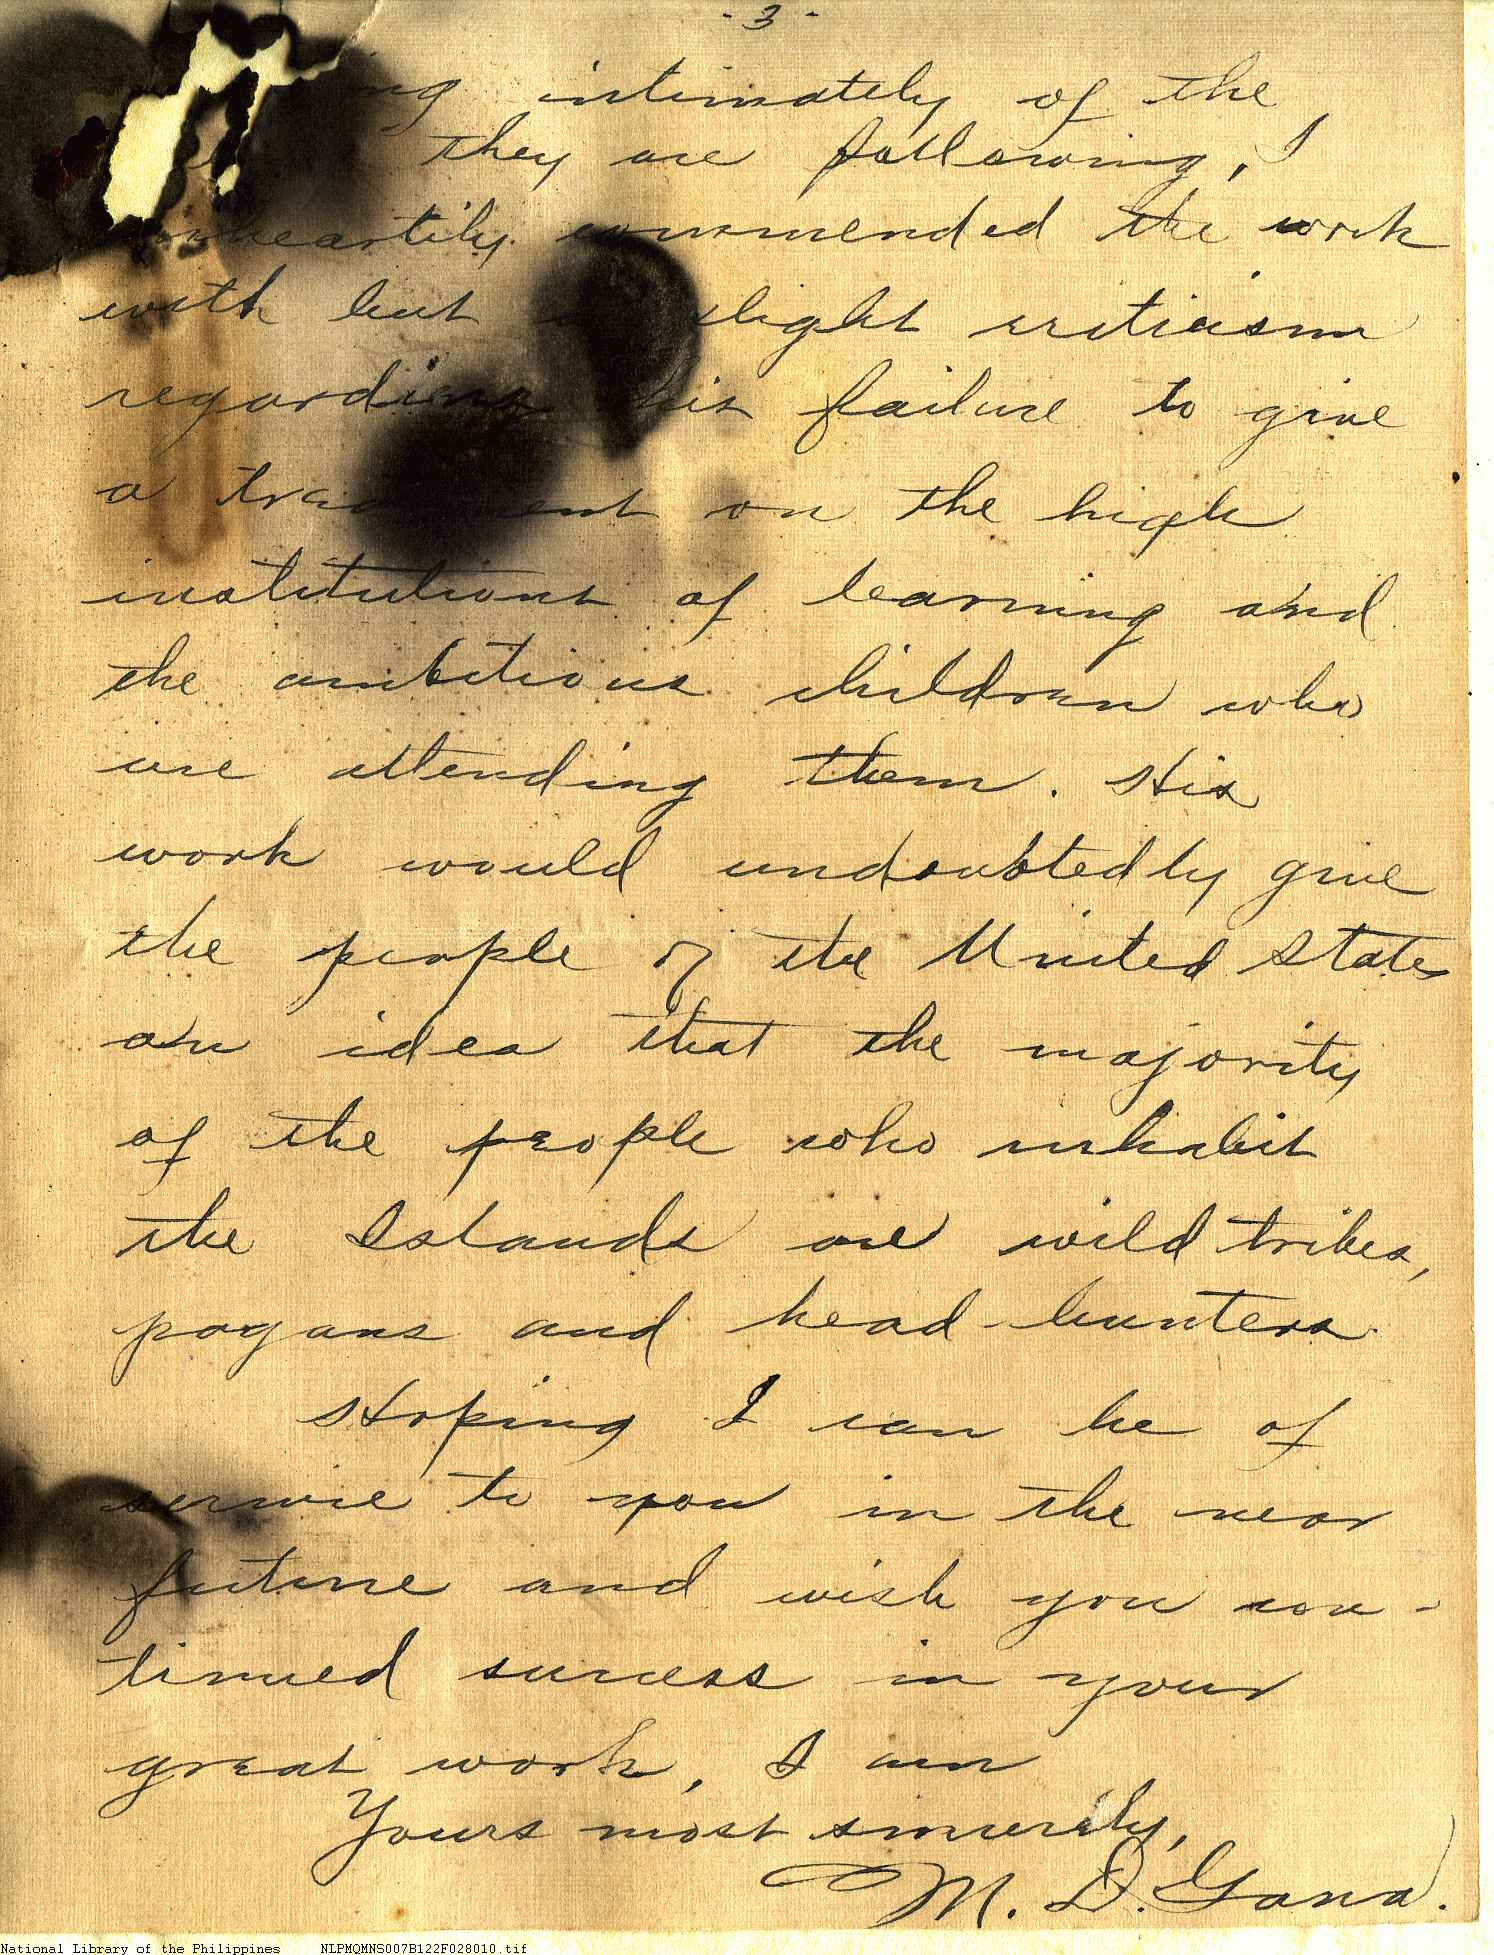 - 3 -
intimately of the
they are following, I
heartily commended the work
with but a slight criticism
regarding his failure to give
a treatment on the high
institutions of learning and
the ambitious children who
are attending them. His
work would undoubtedly give
the people of the United States
an idea that the majority
of the people who inhabit
the Islands are wild tribes,
pagans and head-hunters.
Hoping I can be of
service to you in the near
future and wish you con-
tinued success in your
great work, I am
Yours most sincerely,
M. D. Gana.
National Library of the Philippines NLPMQMNS007B122F028010.tif